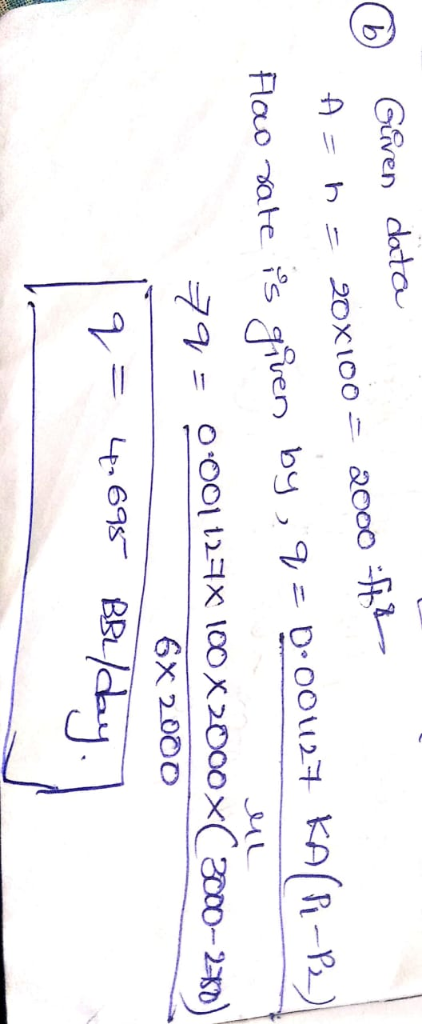 (b) Given data
A = h = 20x100 = 2000 ft²
Flow rate is given by, q = 0.001127 KA(P1-P2)
μL
⇒ q = 0.001127x 100x2000x(3000-2750)
6x2000
q = 4.695 BBL/day.